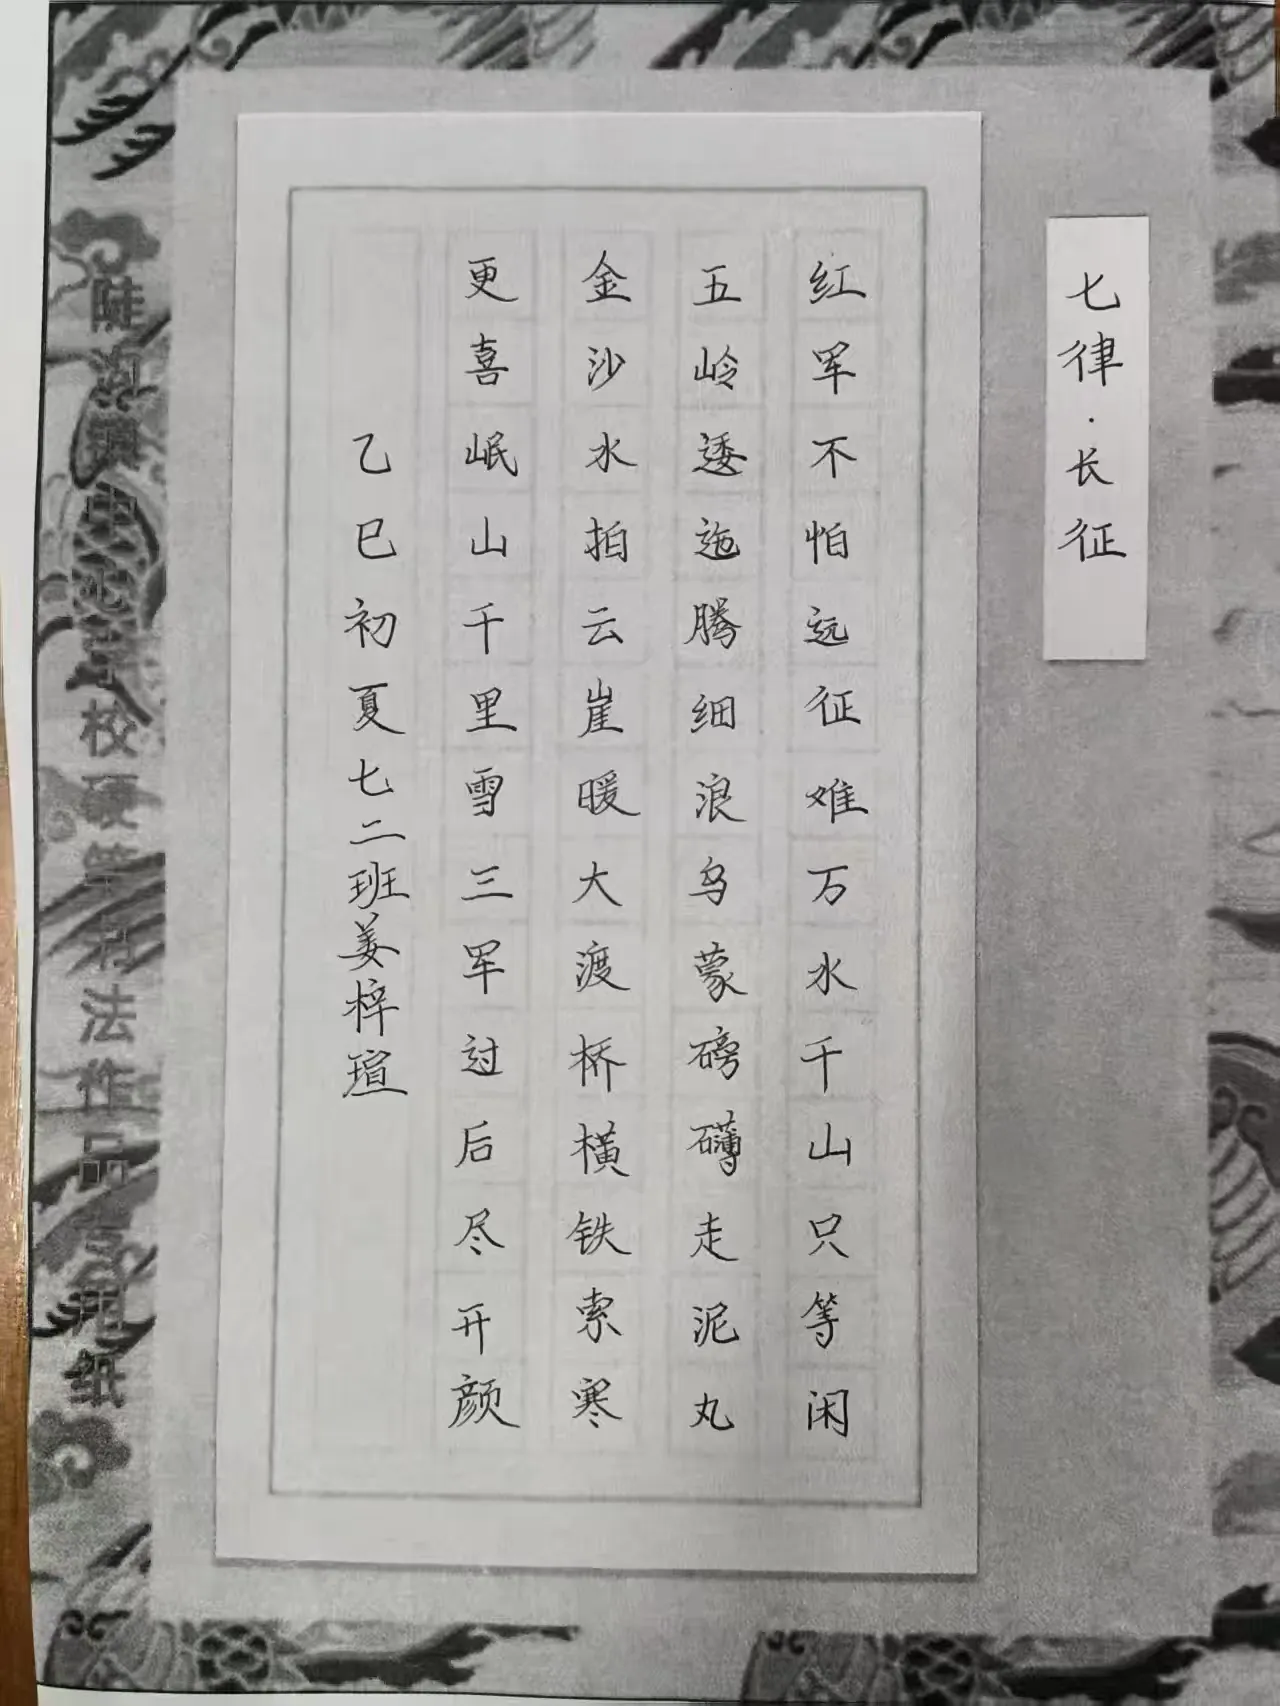 七律·长征
红军不怕远征难万水千山只等闲
五岭逶迤腾细浪乌蒙磅礴走泥丸
金沙水拍云崖暖大渡桥横铁索寒
更喜岷山千里雪三军过后尽开颜
乙巳初夏七二班姜梓瑄
镇中心学校硬笔书法作品专用纸